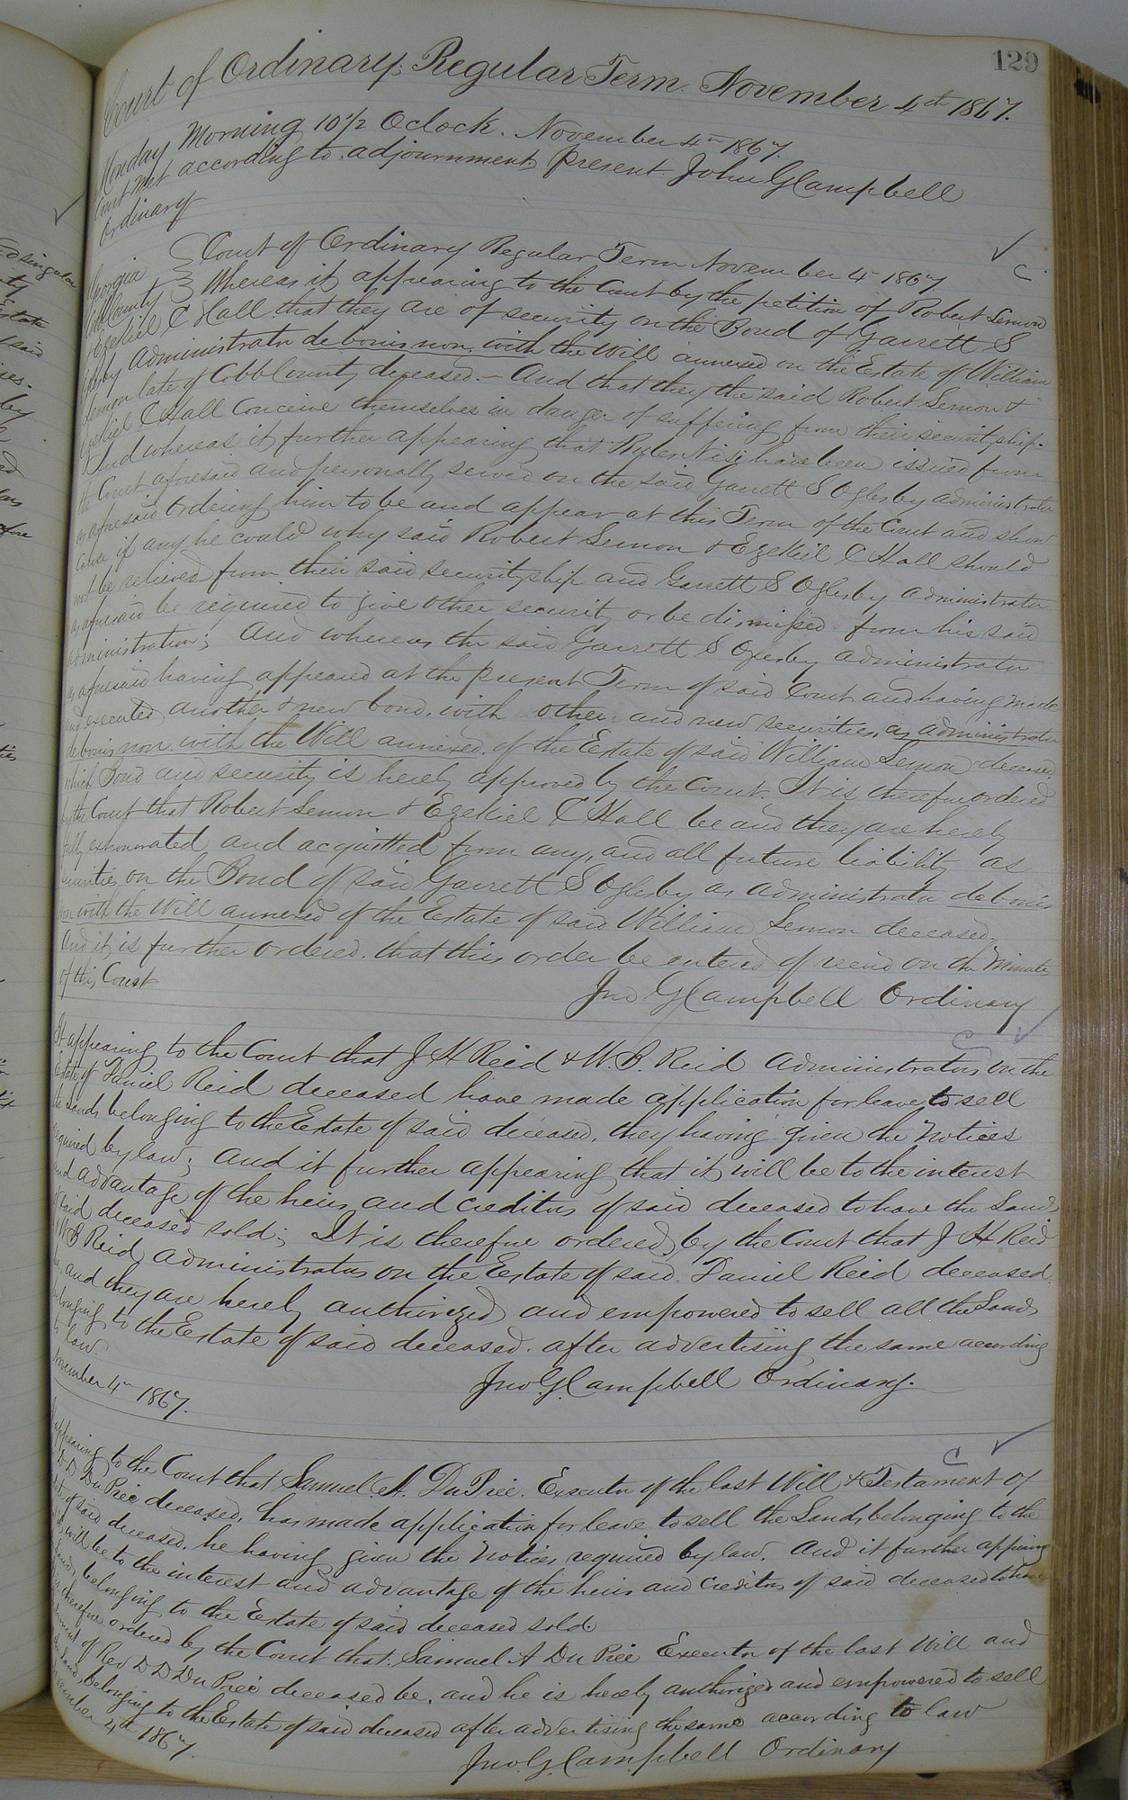 129
Court of Ordinary, Regular Term November 4th 1867.
Monday Morning 10 1/2 Oclock. November 4th 1867.
Court met according to adjournment present John G Campbell
Ordinary
Georgia } Court of Ordinary Regular Term November 4th 1867
Cobb County } Whereas it appearing to the Court by the petition of Robert Lemon
& Ezekiel C Hall that they are of security on the Bond of Garrett S
Oglesby Administrator de bonis non with the Will annexed on the Estate of William
Lemon late of Cobb County deceased. – And that they the said Robert Lemon &
Ezekiel C Hall Conceive themselves in danger of suffering from their securityship.
And whereas it further appearing that Rules Nisi have been issued from
the Court aforesaid and personally served on the said Garrett S Oglesby administrator
as aforesaid Ordering him to be and appear at this Term of the Court and show
cause if any he could why said Robert Lemon & Ezekiel C Hall should
not be relieved from their said securityship and Garrett S Oglesby administrator
as aforesaid be required to give other security or be dismissed from his said
administration; And whereas the said Garrett S Oglesby administrator
as aforesaid having appeared at the present Term of said Court and having made
and executed another & new bond, with other and new securities, as administrator
de bonis non with the Will annexed of the Estate of said William Lemon deceased
which Bond and security is hereby approved by the Court. It is therefore ordered
by the Court that Robert Lemon & Ezekiel C Hall be and they are hereby
fully exhonorated and acquitted from any, and all future liability as
securities on the Bond of said Garrett S Oglesby as administrator de bonis
non with the Will annexed of the Estate of said William Lemon deceased,
And it is further ordered that this order be entered of record on the Minutes
of this Court
Jno G Campbell Ordinary
It appearing to the Court that J H Reid & W. B. Reid Administrators on the
Estate of Daniel Reid deceased have made application for leave to sell
the Lands belonging to the Estate of said deceased, they having given the Notices
required by law; And it further appearing that it will be to the interest
and advantage of the heirs and creditors of said deceased to have the Lands
of said deceased sold; It is therefore ordered by the Court that J H Reid
& W B Reid administrators on the Estate of said Daniel Reid deceased
be, and they are hereby authorized and empowered to sell all the Lands
belonging to the Estate of said deceased. after advertising the same according
to law.
November 4th 1867.
Jno. G. Campbell Ordinary.
appearing to the Court that Samuel A. DuPree. Executor of the last Will & Testament of
D D DuPree deceased, has made application for leave to sell the Lands belonging to the
of said deceased. he having given the Notices required by law. And it further appearing
will be to the interest and advantage of the heirs and Creditors of said deceased to have
belonging to the Estate of said deceased sold
therefore ordered by the Court that Samuel A DuPree Executor of the last Will and
of Rev D D DuPree deceased be, and he is hereby authorized and empowered to sell
belonging to the Estate of said deceased after advertising the same according to law
November 4th 1867.
Jno. G. Campbell Ordinary